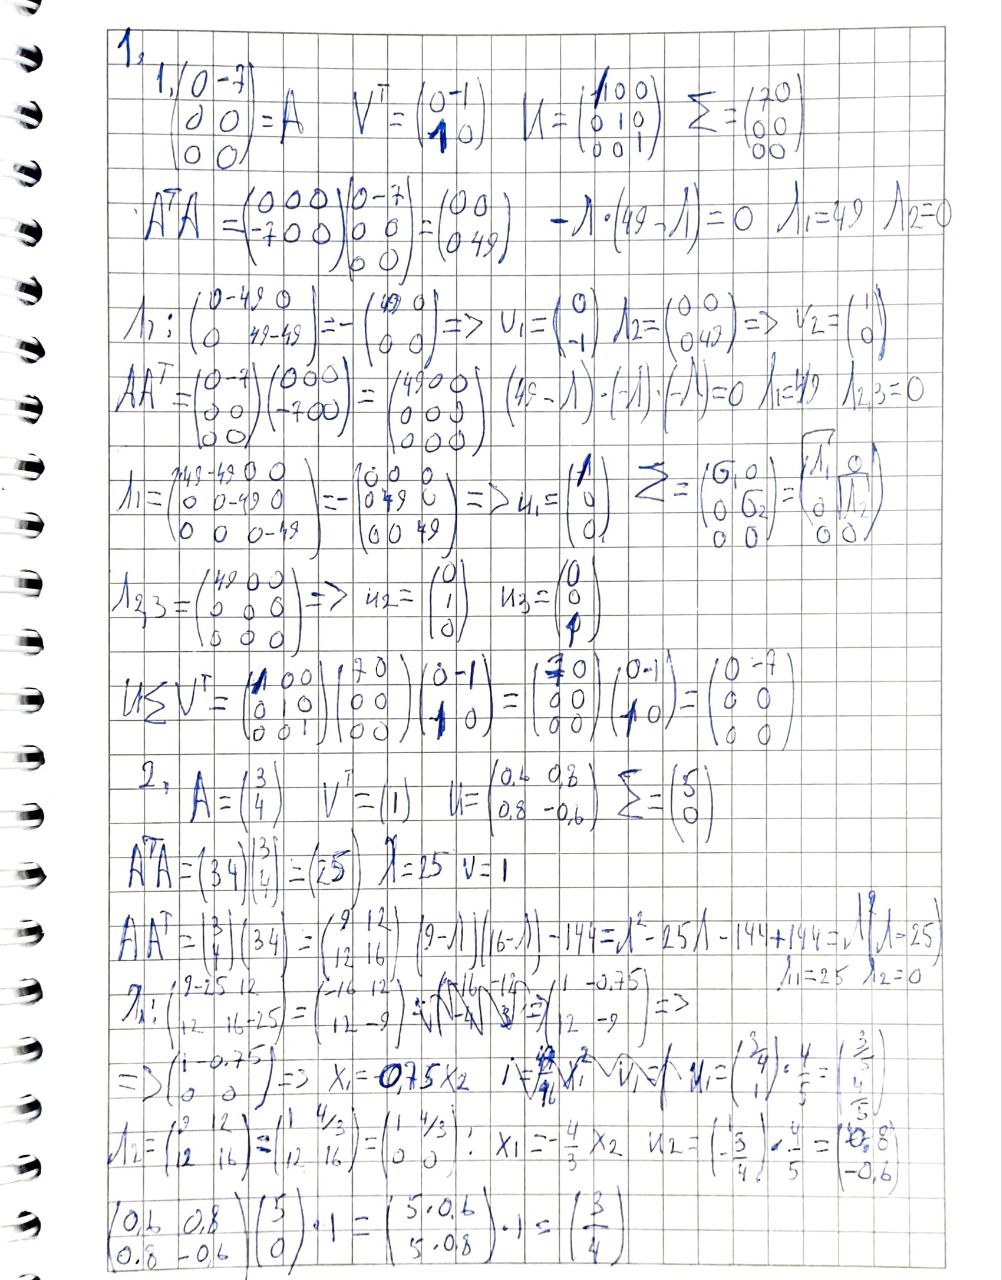 1.
1. (0 -7; 0 0; 0 0) = A   V^T = (0 -1; 1 0)   U = (1 0 0; 0 1 0; 0 0 1)   Σ = (7 0; 0 0; 0 0)
A^T A = (0 0 0; -7 0 0)(0 -7; 0 0; 0 0) = (0 0; 0 49)   -λ·(49-λ) = 0   λ1=49   λ2=0
λ1: (0-49 0; 0 49-49) = -(49 0; 0 0) => v1 = (0; -1)   λ2 = (0 0; 0 49) => v2 = (1; 0)
AA^T = (0 -7; 0 0; 0 0)(0 0 0; -7 0 0) = (49 0 0; 0 0 0; 0 0 0)   (49-λ)·(-λ)·(-λ) = 0   λ1=49   λ2,3=0
λ1 = (49-49 0 0; 0 0-49 0; 0 0 0-49) = -(0 0 0; 0 49 0; 0 0 49) => u1 = (1; 0; 0)   Σ = (σ1 0; 0 σ2; 0 0) = (√λ1 0; 0 √λ2; 0 0)
λ2,3 = (49 0 0; 0 0 0; 0 0 0) => u2 = (0; 1; 0)   u3 = (0; 0; 1)
UΣV^T = (1 0 0; 0 1 0; 0 0 1)(7 0; 0 0; 0 0)(0 -1; 1 0) = (7 0; 0 0; 0 0)(0 -1; 1 0) = (0 -7; 0 0; 0 0)
2. A = (3; 4)   V^T = (1)   U = (0,6 0,8; 0,8 -0,6)   Σ = (5; 0)
A^T A = (3 4)(3; 4) = (25)   λ=25   v=1
AA^T = (3; 4)(3 4) = (9 12; 12 16)   (9-λ)(16-λ)-144 = λ²-25λ-144+144 = λ(λ-25)
λ1=25   λ2=0
λ1: (9-25 12; 12 16-25) = (-16 12; 12 -9) = (1 -0,75; 12 -9) =>
=> (1 -0,75; 0 0) => x1 = 0,75x2   u1 = (3/4; 1)·4/5 = (3/5; 4/5)
λ2 = (9 12; 12 16) = (1 4/3; 12 16) = (1 4/3; 0 0):   x1 = -4/3 x2   u2 = (1; -3/4)·4/5 = (0,8; -0,6)
(0,6 0,8; 0,8 -0,6)(5; 0)·1 = (5·0,6; 5·0,8)·1 = (3; 4)